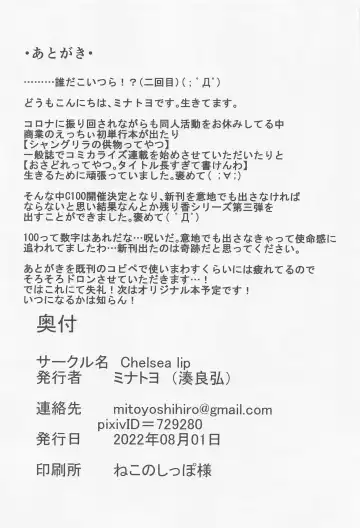 ・あとがき・
………誰だこいつら！？(二回目)(；ﾟДﾟ)
どうもこんにちは、ミナトヨです。生きてます。
コロナに振り回されながらも同人活動をお休みしてる中
商業のえっちぃ初単行本が出たり
【シャングリラの供物ってやつ】
一般誌でコミカライズ連載を始めさせていただいたりと
【おさどれってやつ、タイトル長すぎて書けんわ】
生きるために頑張っていました。褒めて(；∀；)
そんな中C100開催決定となり、新刊を意地でも出さなければ
ならないと思い結果なんとか残り香シリーズ第三弾を
出すことができました。褒めて(ﾟДﾟ)
100って数字はあれだな…呪いだ。意地でも出さなきゃって使命感に
追われてましたわ…新刊出たのは奇跡だと思ってください。
あとがきを既刊のコピペで使いまわすくらいには疲れてるので
そろそろドロンさせていただきます…！
ではこれにて失礼！次はオリジナル本予定です！
いつになるかは知らん！
奥付
サークル名 Chelsea lip
発行者 ミナトヨ （湊良弘）
連絡先 mitoyoshihiro@gmail.com
pixivID＝729280
発行日 2022年08月01日
印刷所 ねこのしっぽ様